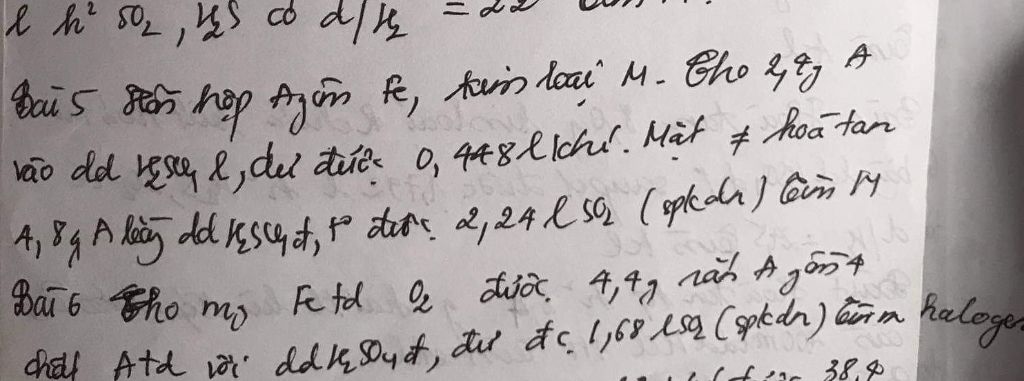 l h² SO₂, H₂S có d/H₂ = 22
Bài 5 Hỗn hợp A gồm Fe, kim loại M. Cho 2,4g A
vào dd H₂SO₄ l, dư được 0,448 l khí. Mặt ≠ hoà tan
4,8g A bằng dd H₂SO₄ đ, t° được 2,24 l SO₂ (spkdn) tìm M
Bài 6 Cho mg Fe td O₂ được 4,4g rắn A gồm 4
chất A td với dd H₂SO₄ đ, dư đc 1,68 l SO₂ (spkdn) tìm m halogen
38,4